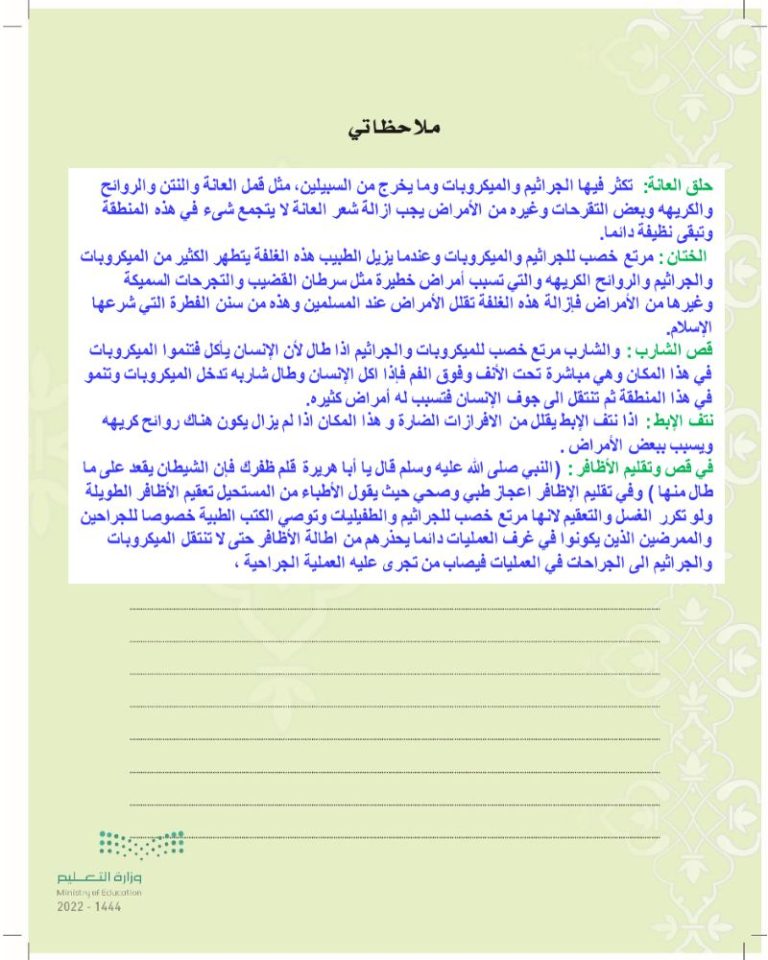 ملاحظاتي
حلق العانة: تكثر فيها الجراثيم والميكروبات وما يخرج من السبيلين، مثل قمل العانة والنتن والروائح
والكريهه وبعض التقرحات وغيره من الأمراض يجب ازالة شعر العانة لا يتجمع شىء في هذه المنطقة
وتبقى نظيفة دائما.
الختان: مرتع خصب للجراثيم والميكروبات وعندما يزيل الطبيب هذه الغلفة يتطهر الكثير من الميكروبات
والجراثيم والروائح الكريهه والتي تسبب أمراض خطيرة مثل سرطان القضيب والتجرحات السميكة
وغيرها من الأمراض فإزالة هذه الغلفة تقلل الأمراض عند المسلمين وهذه من سنن الفطرة التي شرعها
الإسلام.
قص الشارب: والشارب مرتع خصب للميكروبات والجراثيم اذا طال لأن الإنسان يأكل فتنموا الميكروبات
في هذا المكان وهي مباشرة تحت الأنف وفوق الفم فإذا اكل الإنسان وطال شاربه تدخل الميكروبات وتنمو
في هذا المنطقة ثم تنتقل الى جوف الإنسان فتسبب له أمراض كثيره.
نتف الإبط: اذا نتف الإبط يقلل من الافرازات الضارة و هذا المكان اذا لم يزال يكون هناك روائح كريهه
ويسبب ببعض الأمراض .
في قص وتقليم الأظافر : (النبي صلى الله عليه وسلم قال يا أبا هريرة قلم ظفرك فإن الشيطان يقعد على ما
طال منها ) وفي تقليم الإظافر اعجاز طبي وصحي حيث يقول الأطباء من المستحيل تعقيم الأظافر الطويلة
ولو تكرر الغسل والتعقيم لانها مرتع خصب للجراثيم والطفيليات وتوصي الكتب الطبية خصوصا للجراحين
والممرضين الذين يكونوا في غرف العمليات دائما يحذرهم من اطالة الأظافر حتى لا تنتقل الميكروبات
والجراثيم الى الجراحات في العمليات فيصاب من تجرى عليه العملية الجراحية ،
وزارة التعليم
Ministry of Education
2022 - 1444